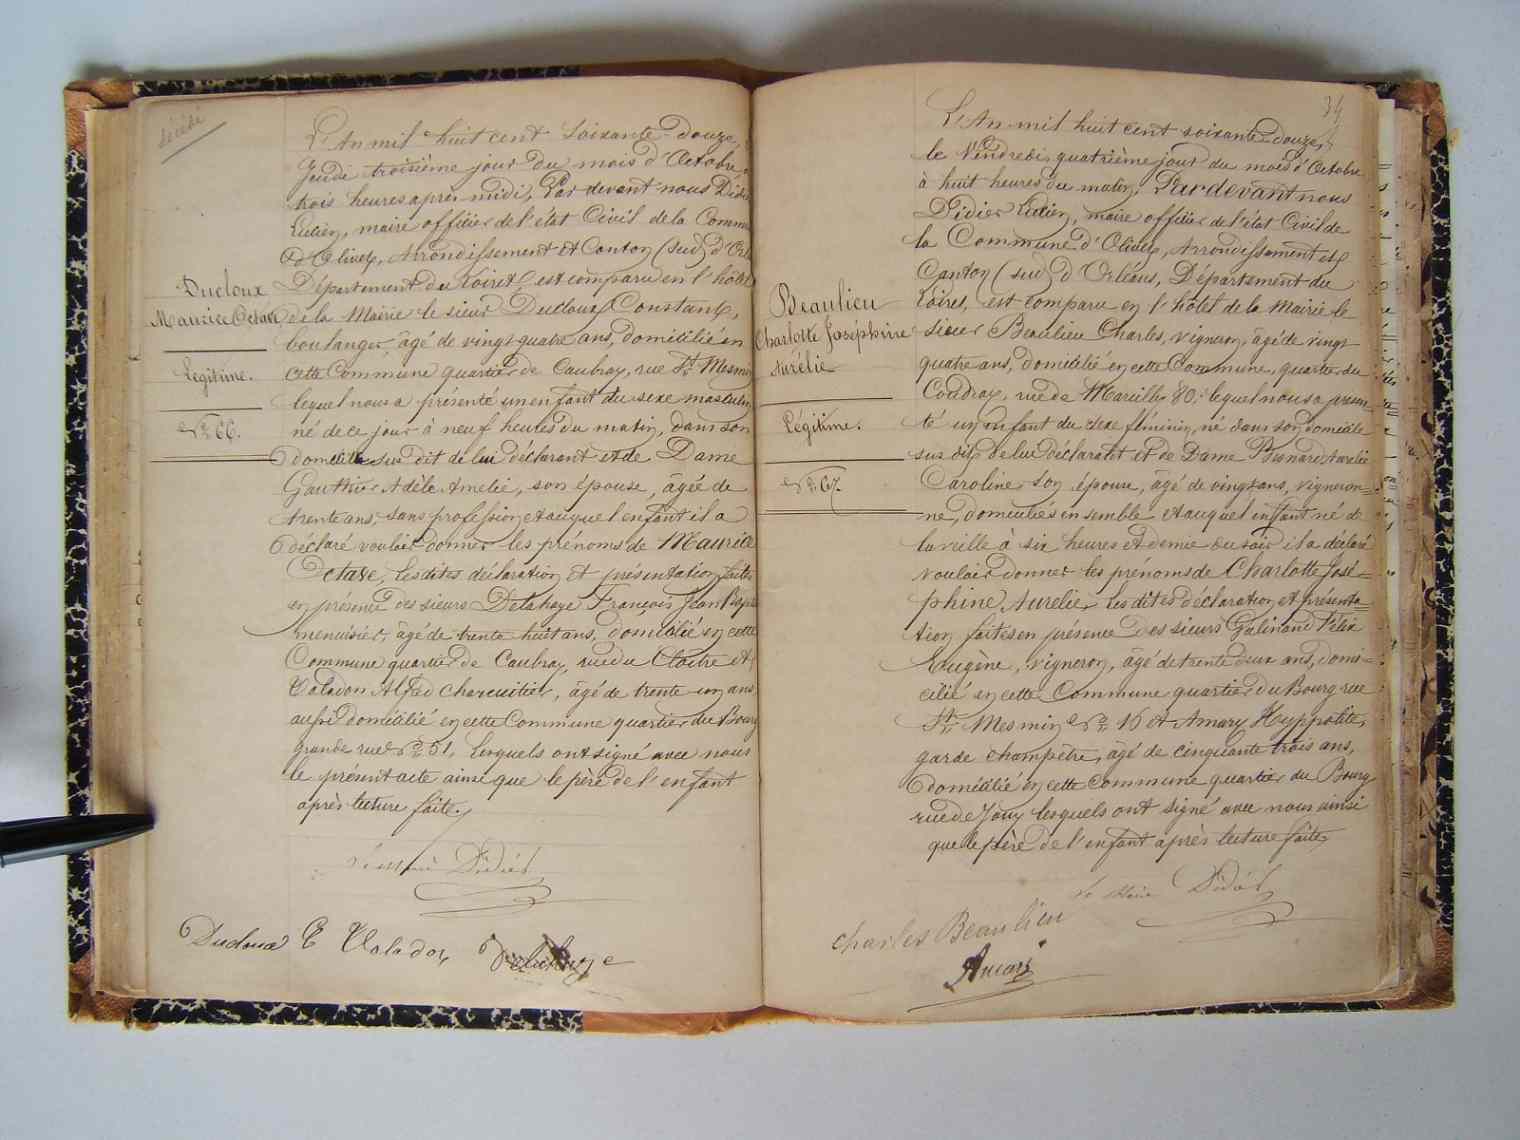 décédé
L'An mil huit cent soixante-douze,
Jeudi troisième jour du mois d'Octobre à
trois heures après midi, Par devant nous Didier
Lucien, maire officier de l'état Civil de la Commune
d'Olivet, Arrondissement et Canton (sud) d'Orl
Département du Loiret est comparu en l'hôtel
de la Mairie le sieur Ducloux Constant,
boulanger, âgé de vingt quatre ans, domicilié en
cette Commune quartier de Caubray, rue St Mesmin
lequel nous a présenté un enfant du sexe masculin,
né de ce jour à neuf heures du matin, dans son
domicile sus dit de lui déclarant et de Dame
Gauthier Adèle Amélie, son épouse, âgée de
trente ans, sans profession et auquel enfant il a
déclaré vouloir donner les prénoms de Maurice
Octave, les dites déclaration et présentation faites
en présence des sieurs Delahaye François Jean Bapt
menuisier, âgé de trente huit ans, domicilié en cette
Commune quartier de Caubray, rue du Cloître et
Valadon Alfred charcutier, âgé de trente un ans,
aussi domicilié en cette Commune quartier du Bourg
grande rue No 51, lesquels ont signé avec nous
le présent acte ainsi que le père de l'enfant
après lecture faite,
Le Maire Didier
Ducloux C Valadon Delahaye
Ducloux
Maurice Octave
Légitime.
No 66.
34
L'An mil huit cent soixante-douze,
le Vendredi quatrième jour du mois d'Octobre
à huit heures du matin, Pardevant nous
Didier Lucien, maire officier de l'état Civil de
la Commune d'Olivet, Arrondissement et
Canton (sud) d'Orléans, Département du
Loiret, est comparu en l'hôtel de la Mairie le
sieur Beaulieu Charles, vigneron, âgé de vingt
quatre ans, domicilié en cette Commune, quartier du
Coudray, rue de Mareilles 80, lequel nous a présen-
té un enfant du sexe féminin, né dans son domicile
sus dit, de lui déclarant et de Dame Besnard Aurélie
Caroline son épouse, âgé de vingt ans, vigneron=
ne, domiciliés ensemble et auquel enfant né de
la veille à six heures et demie du soir il a déclaré
vouloir donner les prénoms de Charlotte José=
phine Aurélie, les dites déclaration et présenta=
tion faites en présence des sieurs Galinand Félix
Eugène, vigneron, âgé de trente deux ans, domi=
cilié en cette Commune quartier du Bourg rue
St Mesmin No 16 et Amary Hyppolite,
garde champêtre, âgé de cinquante trois ans,
domicilié en cette Commune quartier du Bourg
rue de Jouy lesquels ont signé avec nous ainsi
que le père de l'enfant après lecture faite,
Le Maire Didier
Charles Beaulieu
Amary
Beaulieu
Charlotte Joséphine
Aurélie
Légitime.
No 67.